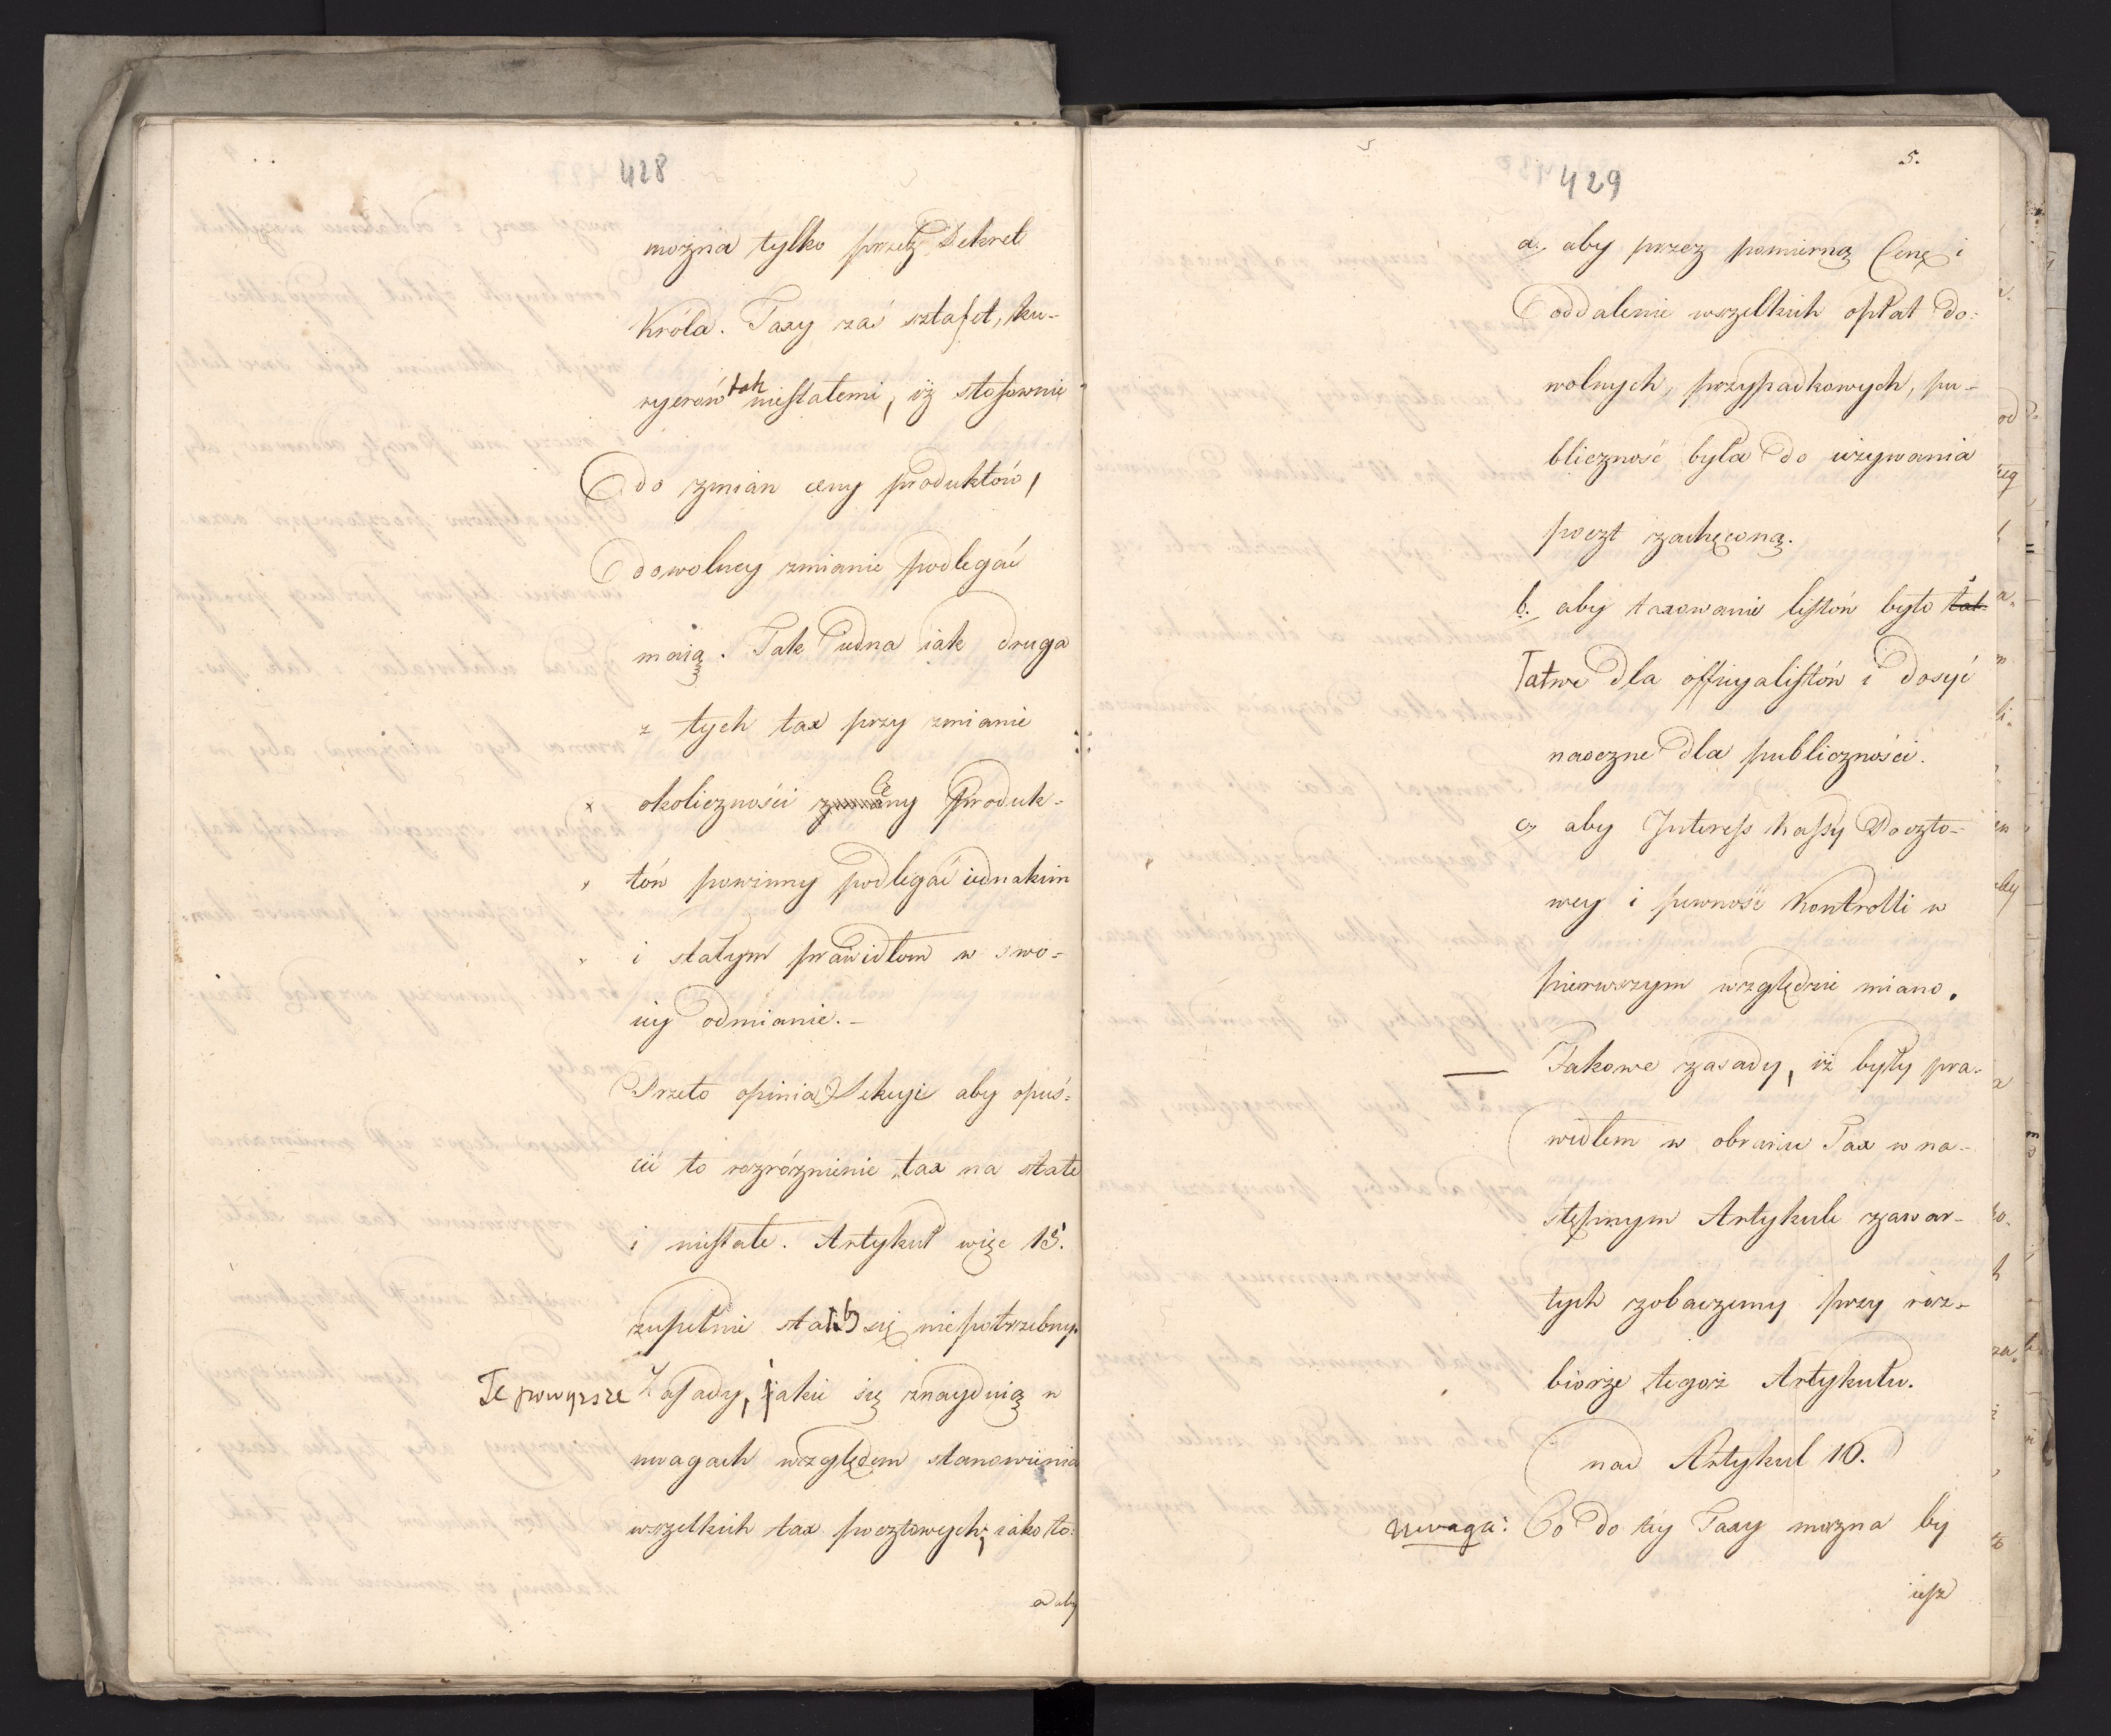 428
można tylko przez Dekret
Króla. Taxy zaś sztafet, ku-
ryerów tak niestałemi, iż stosownie
do zmian ceny produktów,
dowolney zmianie podlegać
maią. Tak iedna iak druga
z tych tax przy zmianie
okoliczności Ceny Produk-
tów powinny podlegać iednakim
i stałym prawidłom w swo-
iey odmianie. -
Przeto opinia Sekcyi aby opuś-
cić to rozróżnienie tax na stałe
i niestałe. Artykuł więc 15.
zupełnie stałby się niepotrzebny.
Te powyższe Zasady, iakie się znayduią w
uwagach względem stanowienia
wszelkich tax pocztowych, iako to:
a aby
5.
429
a. aby przez pomierną Cenę i
oddalenie wszelkich opłat do-
wolnych, przypadkowych, pu-
bliczność była do używania
poczt zachęconą.
b. aby taxowanie listów było tak
łatwe dla officyalistów i dosyć
naoczne dla publiczności.
c. aby Interess Kassy Poczto-
wey i pewność Kontrolli w
pierwszym względzie miano.
Takowe zasady, iż były pra-
widłem w obraniu Tax w na-
stępnym Artykule zawar-
tych zobaczemy przy roz-
biorze tegoż Artykułu.
nad Artykuł 16.
Uwaga: Co do téy Taxy można by
iesz